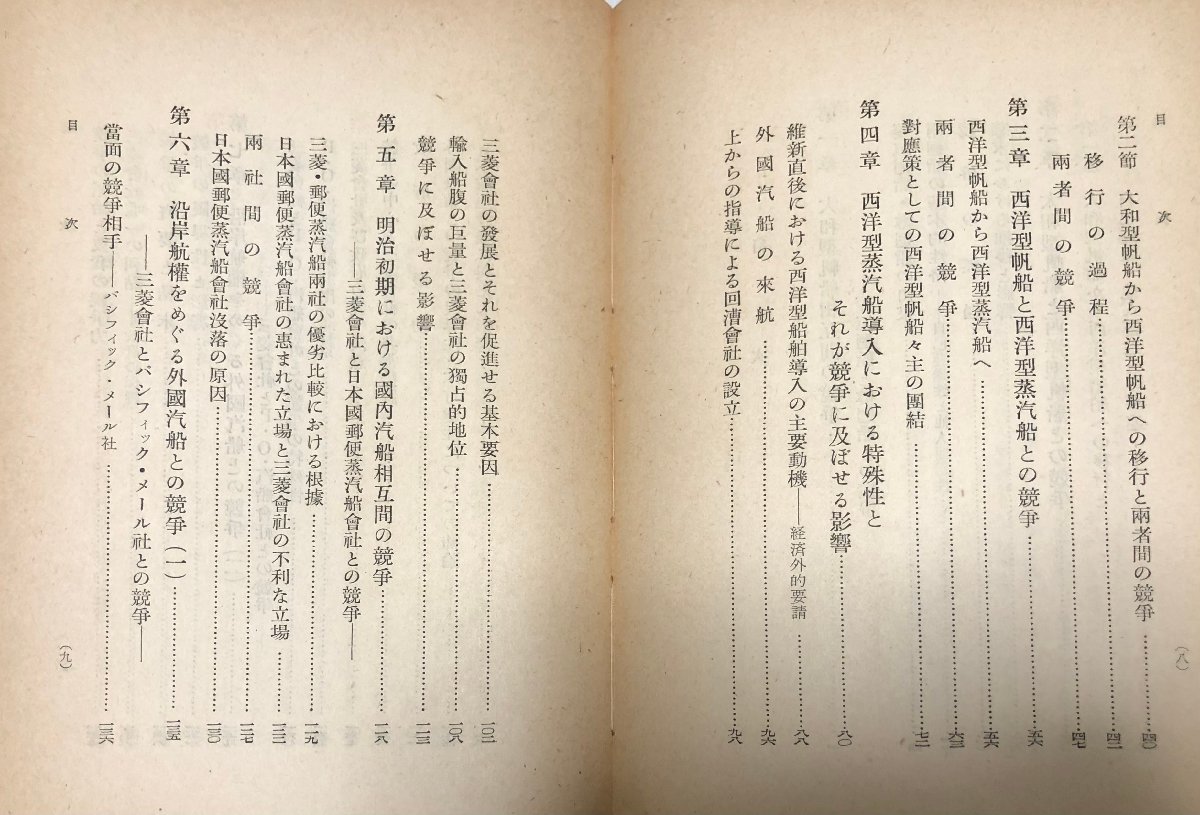 目次
第二節 大和型帆船から西洋型帆船への移行と兩者間の競爭……四〇
移行の過程……四二
兩者間の競爭……四七
第三章 西洋型帆船と西洋型蒸汽船との競爭……五六
西洋型帆船から西洋型蒸汽船へ……五六
兩者間の競爭……六三
對應策としての西洋型帆船々主の團結……七二
第四章 西洋型蒸汽船導入における特殊性と
それが競爭に及ぼせる影響……八〇
維新直後における西洋型船舶導入の主要動機——経済外的要請……八八
外國汽船の來航……九六
上からの指導による回漕會社の設立……九八
(八)
三菱會社の發展とそれを促進せる基本要因……一〇二
輸入船腹の巨量と三菱會社の獨占的地位……一〇八
競爭に及ぼせる影響……一一三
第五章 明治初期における國內汽船相互間の競爭……一一八
——三菱會社と日本國郵便蒸汽船會社との競爭——
三菱・郵便蒸汽船兩社の優劣比較における根據……一一九
日本國郵便蒸汽船會社の惠まれた立場と三菱會社の不利な立場……一二二
兩社間の競爭……一二七
日本國郵便蒸汽船會社沒落の原因……一三〇
第六章 沿岸航權をめぐる外國汽船との競爭(一)……一三五
——三菱會社とパシフィック・メール社との競爭——
當面の競爭相手——パシフィック・メール社……一三六
目次
(九)